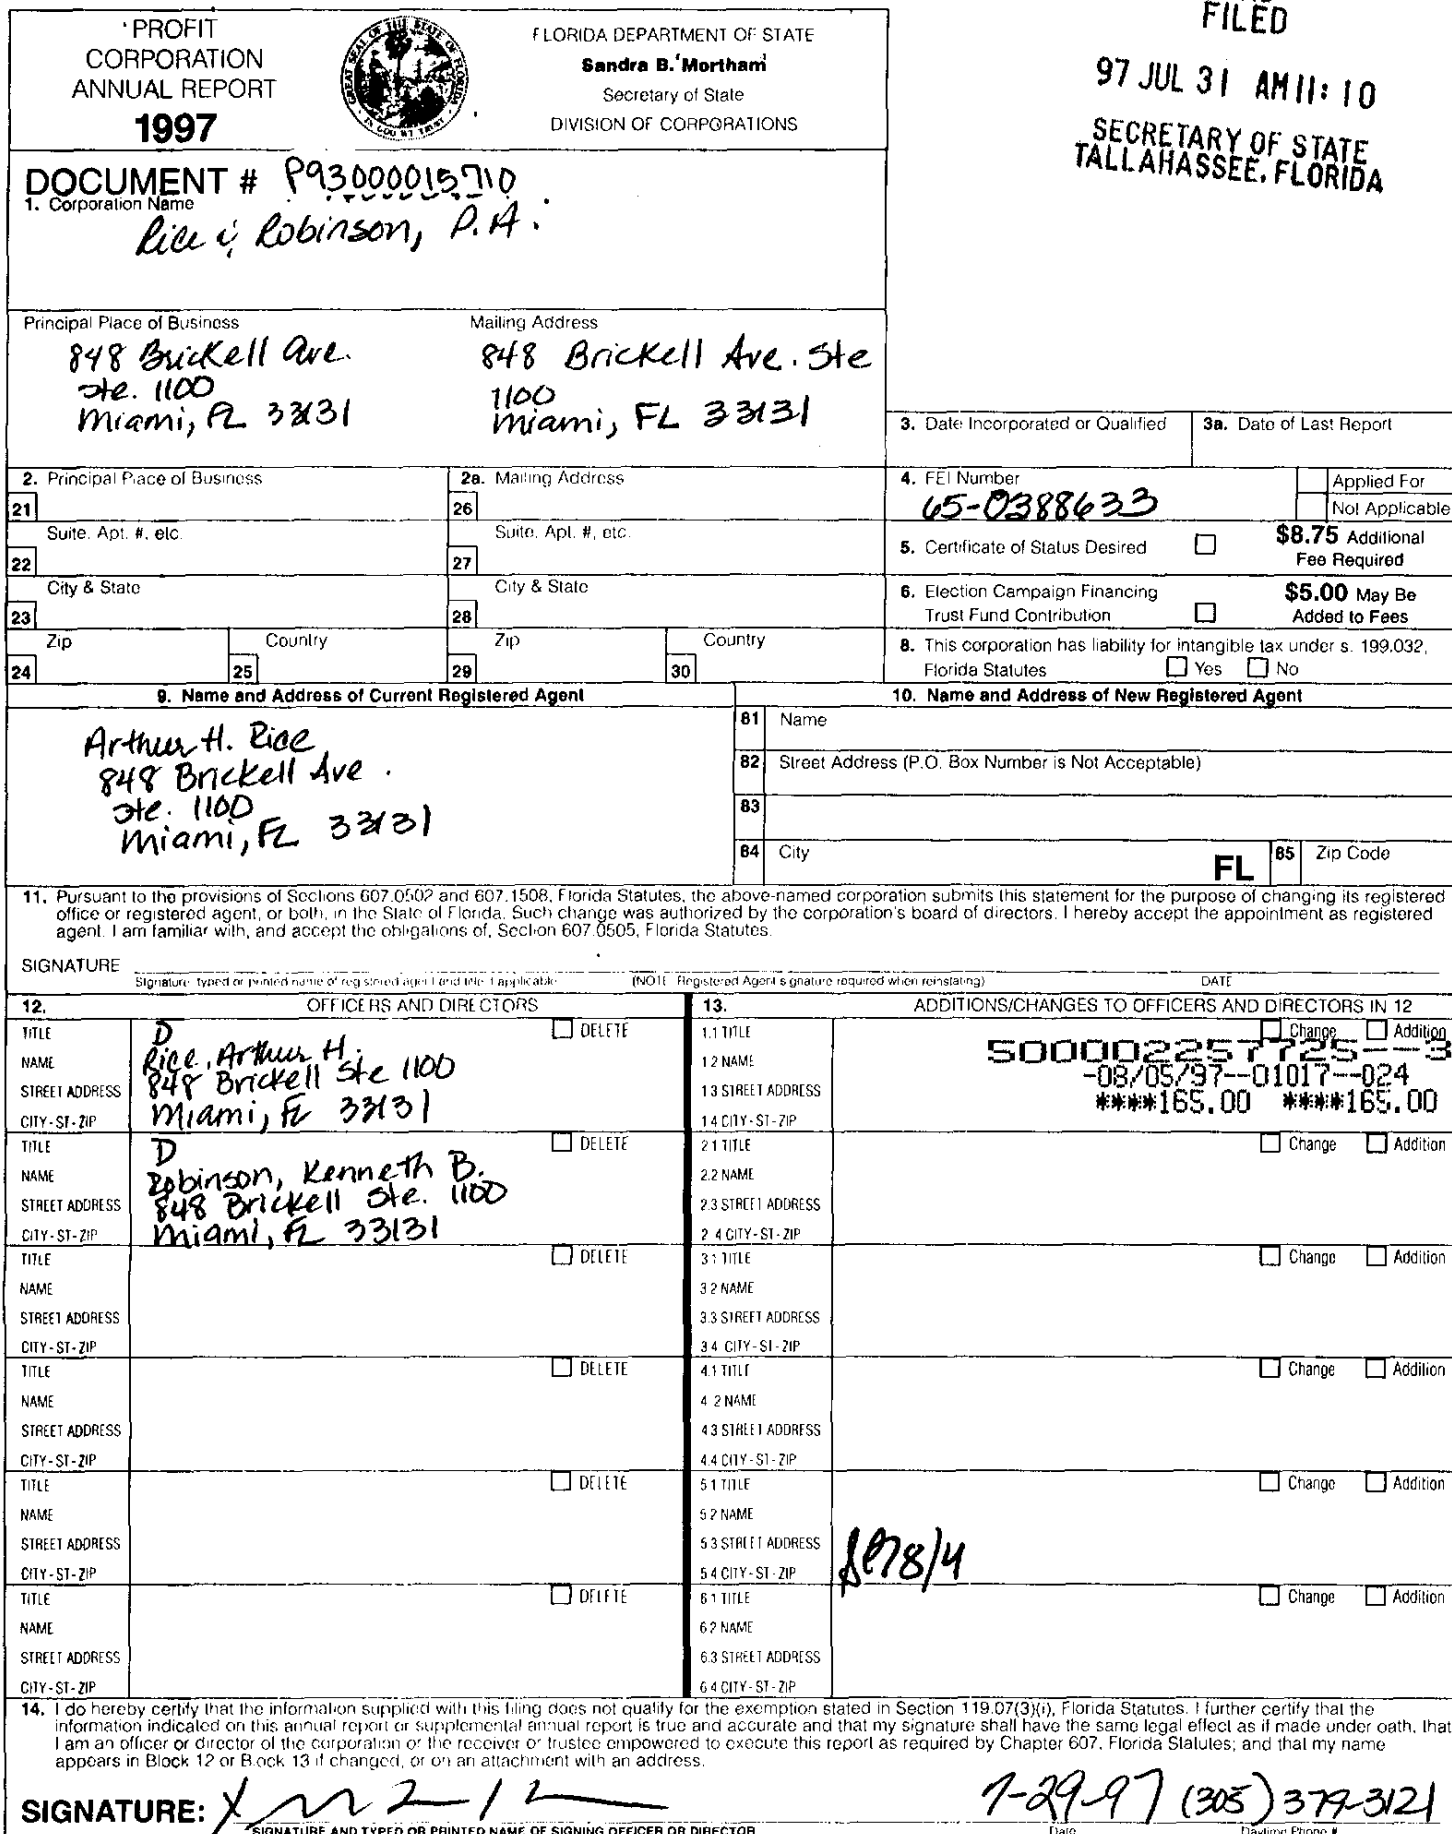 PROFIT
CORPORATION
ANNUAL REPORT
1997
GREAT SEAL OF THE STATE OF FLORIDA
IN GOD WE TRUST
FLORIDA DEPARTMENT OF STATE
Sandra B. Mortham
Secretary of State
DIVISION OF CORPORATIONS
FILED
97 JUL 31 AM 11: 10
SECRETARY OF STATE
TALLAHASSEE, FLORIDA
DOCUMENT # P93000015710
1. Corporation Name
Rice & Robinson, P.A.
Principal Place of Business
848 Brickell Ave.
Ste. 1100
Miami, FL 33131
Mailing Address
848 Brickell Ave. Ste
1100
Miami, FL 33131
3. Date Incorporated or Qualified
3a. Date of Last Report
2. Principal Place of Business
21
Suite, Apt. #, etc.
22
City & State
23
Zip
24
Country
25
2a. Mailing Address
26
Suite, Apt. #, etc.
27
City & State
28
Zip
29
Country
30
4. FEI Number
65-0388633
Applied For
Not Applicable
5. Certificate of Status Desired
$8.75 Additional
Fee Required
6. Election Campaign Financing
Trust Fund Contribution
$5.00 May Be
Added to Fees
8. This corporation has liability for intangible tax under s. 199.032,
Florida Statutes Yes No
9. Name and Address of Current Registered Agent
Arthur H. Rice
848 Brickell Ave.
Ste. 1100
Miami, FL 33131
10. Name and Address of New Registered Agent
81 Name
82 Street Address (P.O. Box Number is Not Acceptable)
83
84 City
FL
85 Zip Code
11. Pursuant to the provisions of Sections 607.0502 and 607.1508, Florida Statutes, the above-named corporation submits this statement for the purpose of changing its registered
office or registered agent, or both, in the State of Florida. Such change was authorized by the corporation's board of directors. I hereby accept the appointment as registered
agent. I am familiar with, and accept the obligations of, Section 607.0505, Florida Statutes.
SIGNATURE
Signature, typed or printed name of registered agent and title if applicable. (NOTE: Registered Agent signature required when reinstating) DATE
12. OFFICERS AND DIRECTORS
TITLE D DELETE
NAME Rice, Arthur H.
STREET ADDRESS 848 Brickell Ste 1100
CITY-ST-ZIP Miami, FL 33131
TITLE D DELETE
NAME Robinson, Kenneth B.
STREET ADDRESS 848 Brickell Ste. 1100
CITY-ST-ZIP Miami, FL 33131
TITLE DELETE
NAME
STREET ADDRESS
CITY-ST-ZIP
TITLE DELETE
NAME
STREET ADDRESS
CITY-ST-ZIP
TITLE DELETE
NAME
STREET ADDRESS
CITY-ST-ZIP
TITLE DELETE
NAME
STREET ADDRESS
CITY-ST-ZIP
13. ADDITIONS/CHANGES TO OFFICERS AND DIRECTORS IN 12
1.1 TITLE Change Addition
1.2 NAME
1.3 STREET ADDRESS
1.4 CITY-ST-ZIP
500002257725--3
-08/05/97--01017--024
****165.00 ****165.00
2.1 TITLE Change Addition
2.2 NAME
2.3 STREET ADDRESS
2.4 CITY-ST-ZIP
3.1 TITLE Change Addition
3.2 NAME
3.3 STREET ADDRESS
3.4 CITY-ST-ZIP
4.1 TITLE Change Addition
4.2 NAME
4.3 STREET ADDRESS
4.4 CITY-ST-ZIP
5.1 TITLE Change Addition
5.2 NAME
5.3 STREET ADDRESS
5.4 CITY-ST-ZIP
8/4
6.1 TITLE Change Addition
6.2 NAME
6.3 STREET ADDRESS
6.4 CITY-ST-ZIP
14. I do hereby certify that the information supplied with this filing does not qualify for the exemption stated in Section 119.07(3)(i), Florida Statutes. I further certify that the
information indicated on this annual report or supplemental annual report is true and accurate and that my signature shall have the same legal effect as if made under oath, that
I am an officer or director of the corporation or the receiver or trustee empowered to execute this report as required by Chapter 607, Florida Statutes; and that my name
appears in Block 12 or Block 13 if changed, or on an attachment with an address.
SIGNATURE: X 7-29-97 (305) 379-3121
SIGNATURE AND TYPED OR PRINTED NAME OF SIGNING OFFICER OR DIRECTOR Date Daytime Phone #